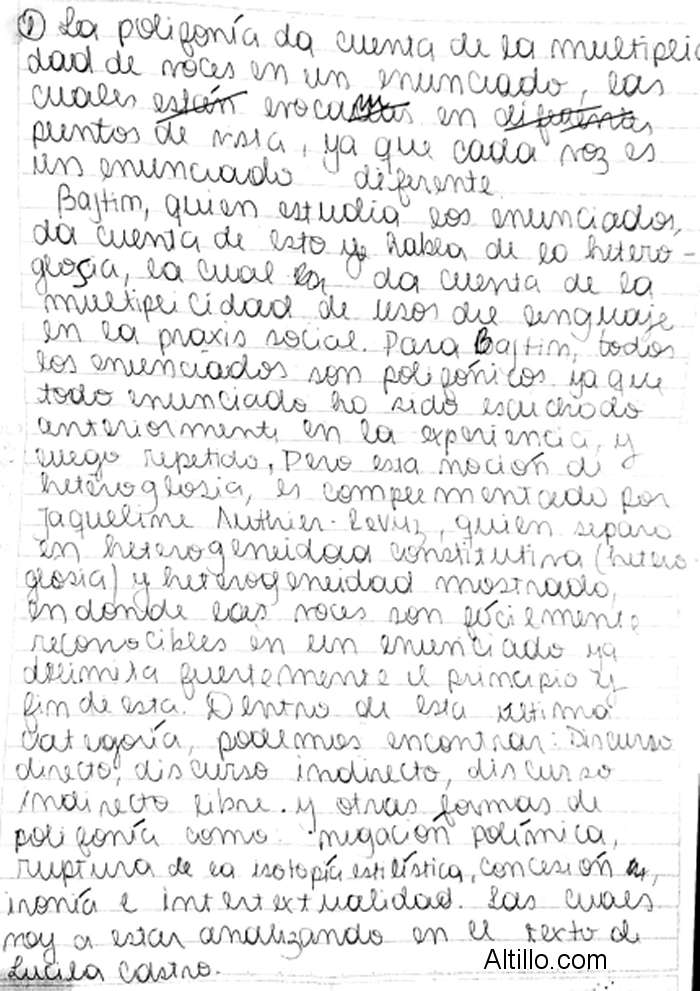 ① La polifonía da cuenta de la multiplici
dad de voces en un enunciado, las
cuales están evocan en diferentes
puntos de vista, ya que cada voz es
un enunciado diferente.
Bajtin, quien estudia los enunciados,
da cuenta de esto y habla de la hetero-
glosia, la cual da cuenta de la
multiplicidad de usos del lenguaje
en la praxis social. Para Bajtin, todos
los enunciados son polifónicos ya que
todo enunciado ha sido escuchado
anteriormente en la experiencia, y
luego repetido. Pero esta noción de
heteroglosia, es complementada por
Jaqueline Authier-Revuz, quien separa
en heterogeneidad constitutiva (hetero-
glosia) y heterogeneidad mostrada,
en donde las voces son fácilmente
reconocibles en un enunciado ya
delimita fuertemente el principio y
fin de esta. Dentro de esta última
categoría, podemos encontrar: Discurso
directo, discurso indirecto, discurso
indirecto libre. y otras formas de
polifonía como: negación polémica,
ruptura de la isotopía estilística, concesión,
ironía e intertextualidad. Las cuales
voy a estar analizando en el texto de
Lucila Castro.
Altillo.com